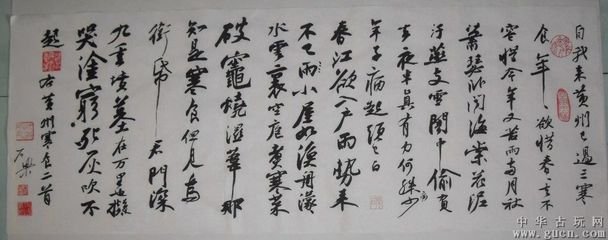 自我来黄州已過三寒
食年〻欲惜春〻去不
容惜今年又苦雨兩月秋
蕭瑟臥聞海棠花泥
汙燕支雪闇中偷負
去夜半真有力何殊少
年子病起頭已白
春江欲入户雨勢来
不已雨小屋如漁舟濛
水雲裏空庖煮寒菜
破竈燒溼葦那
知是寒食但見烏
銜帋君門深
九重墳墓在万里也擬
哭塗窮死灰吹不
起 右黄州寒食二首
中华古玩网
www.gucn.com